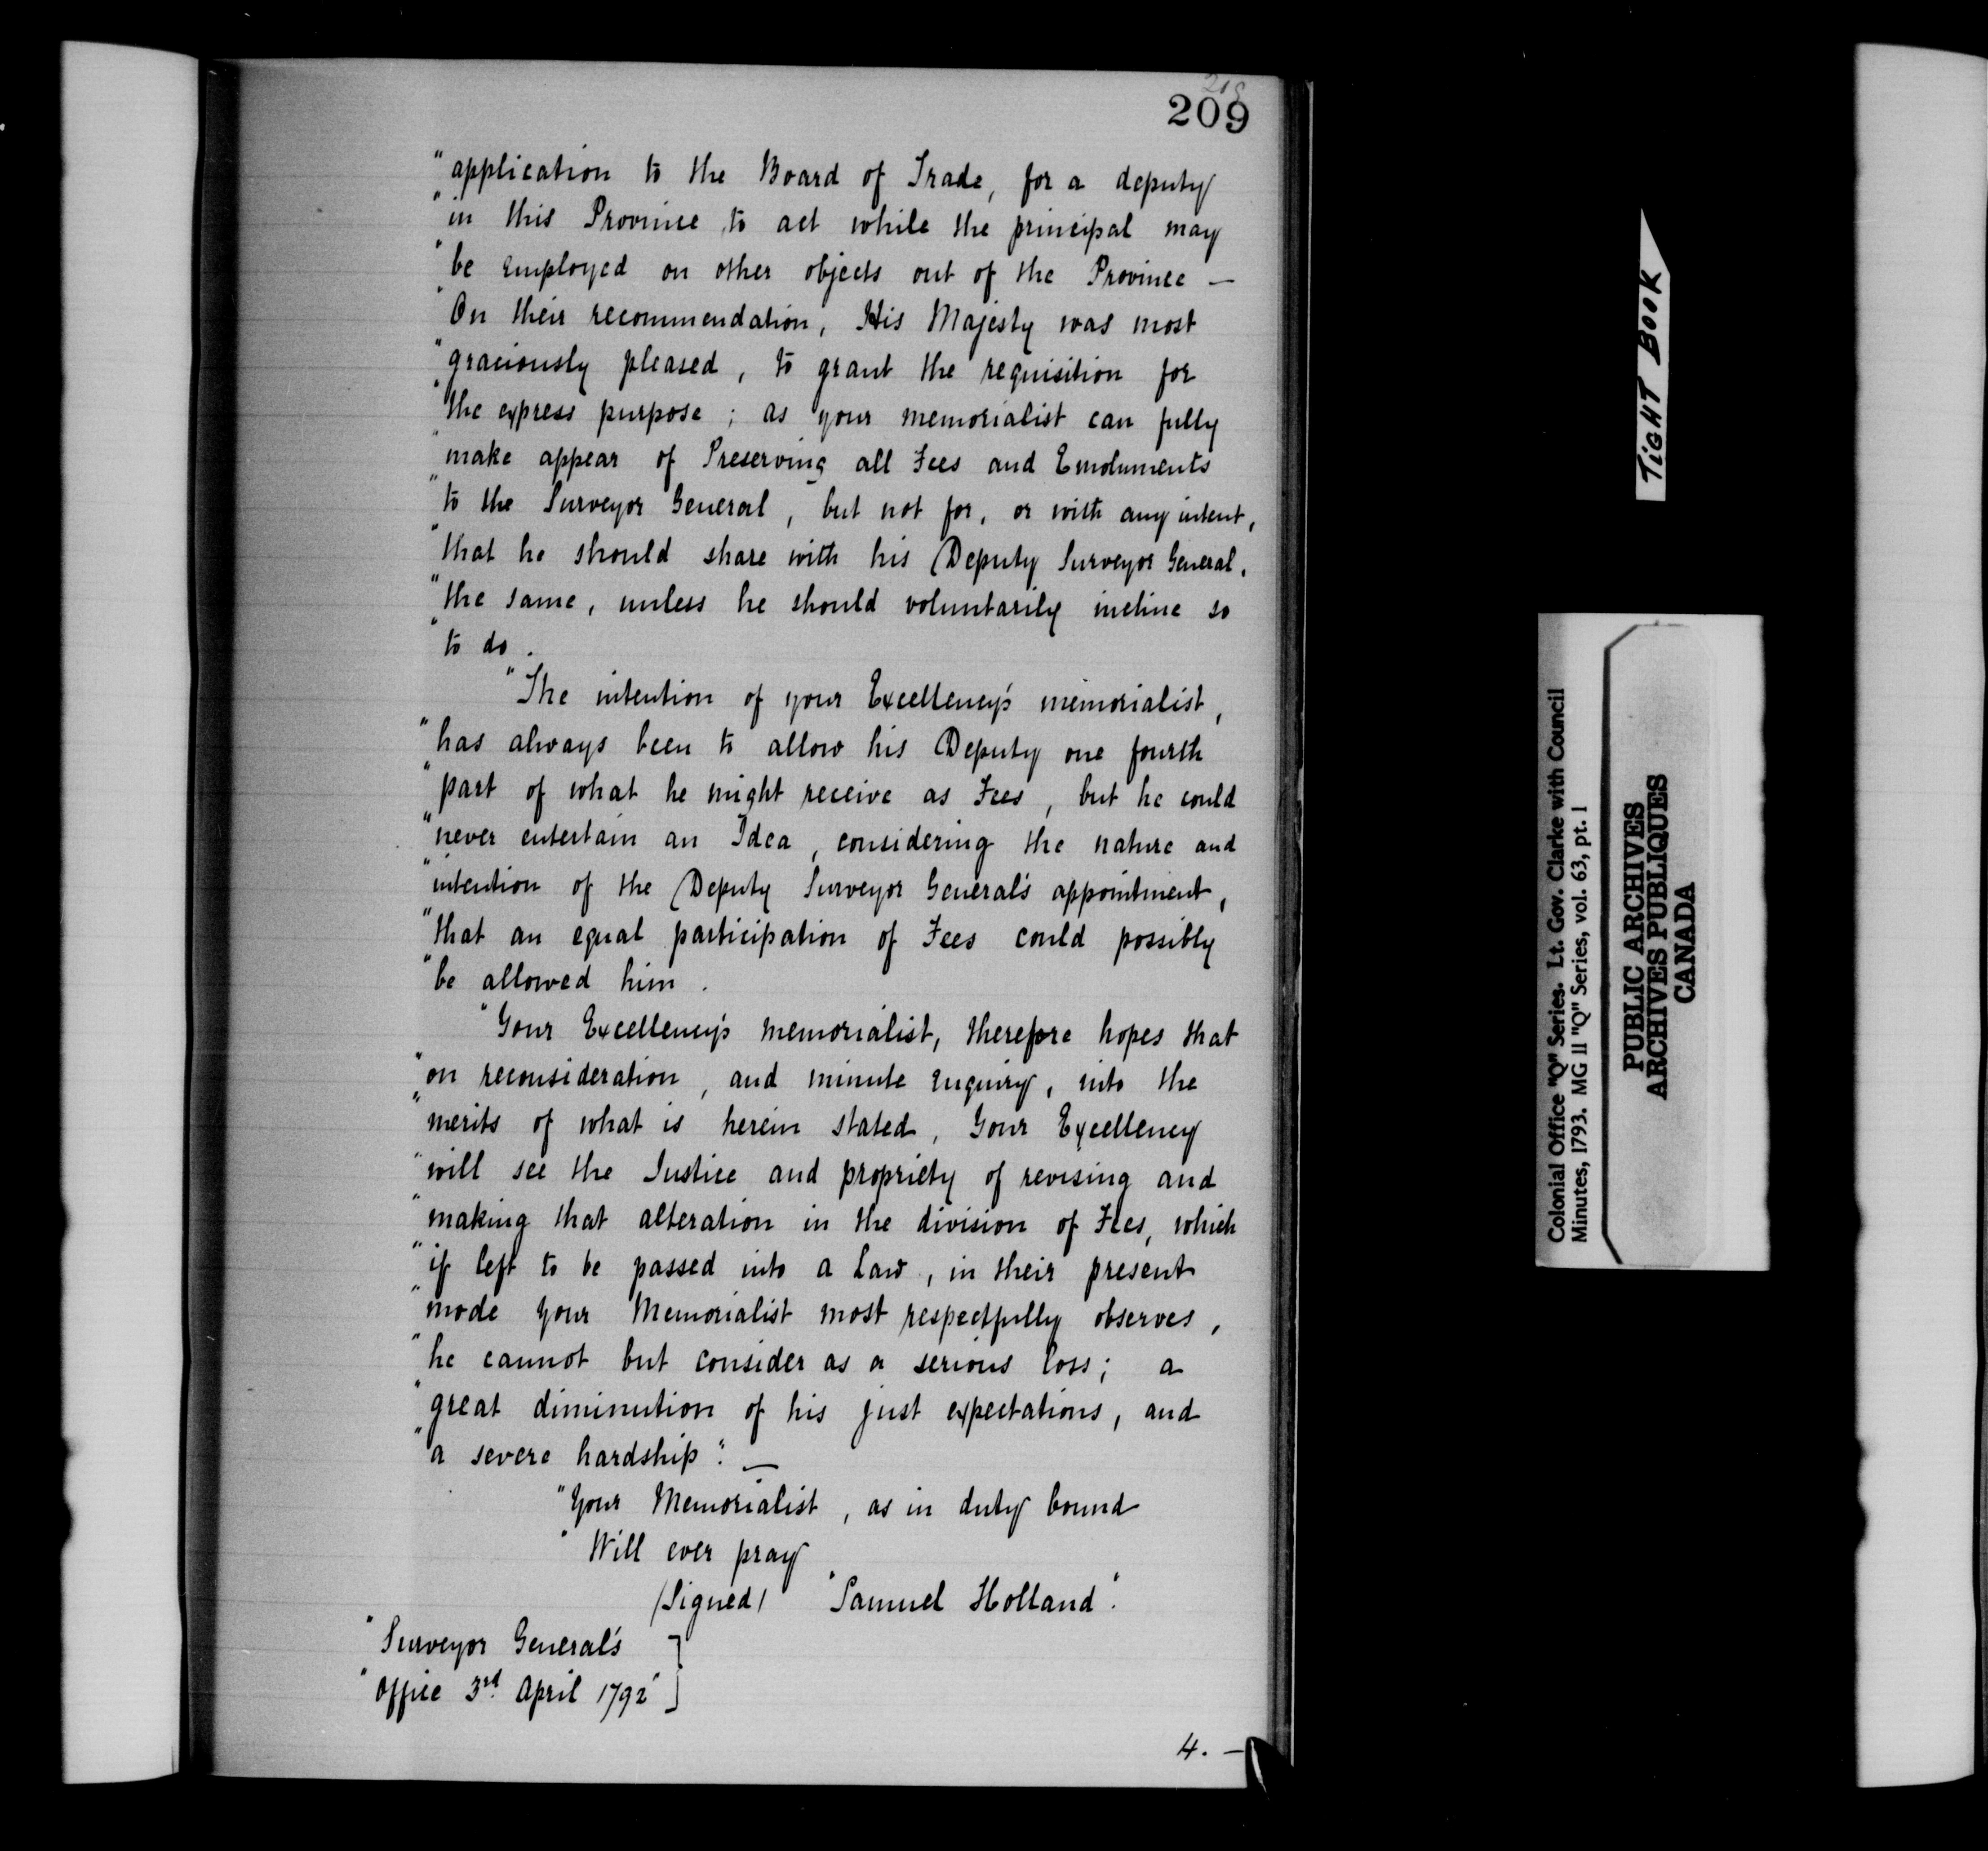 209
"application to the Board of Trade, for a deputy
"in this Province to act while the principal may
"be employed on other objects out of the Province —
"On their recommendation, His Majesty was most
"graciously pleased, to grant the requisition for
"the express purpose; as your memorialist can fully
"make appear of Preserving all Fees and Emoluments
"to the Surveyor General, but not for, or with any intent,
"that he should share with his Deputy Surveyor General,
"the same, unless he should voluntarily incline so
"to do.
"The intention of your Excellency's memorialist,
"has always been to allow his Deputy one fourth
"part of what he might receive as Fees, but he could
"never entertain an Idea, considering the nature and
"intention of the Deputy Surveyor General's appointment,
"that an equal participation of Fees could possibly
"be allowed him.
"Your Excellency's memorialist, therefore hopes that
"on reconsideration, and minute enquiry, into the
"merits of what is herein stated, Your Excellency
"will see the Justice and propriety of revising and
"making that alteration in the division of Fees, which
"if left to be passed into a Law, in their present
"mode your Memorialist most respectfully observes,
"he cannot but consider as a serious loss; a
"great diminution of his just expectations, and
"a severe hardship". —
"Your Memorialist, as in duty bound
"Will ever pray
(Signed) "Samuel Holland".
"Surveyor General's
"Office 3rd April 1792"
4. —
TIGHT BOOK
Colonial Office "Q" Series. Lt. Gov. Clarke with Council
Minutes, 1793. MG 11 "Q" Series, vol. 63, pt. 1
PUBLIC ARCHIVES
ARCHIVES PUBLIQUES
CANADA